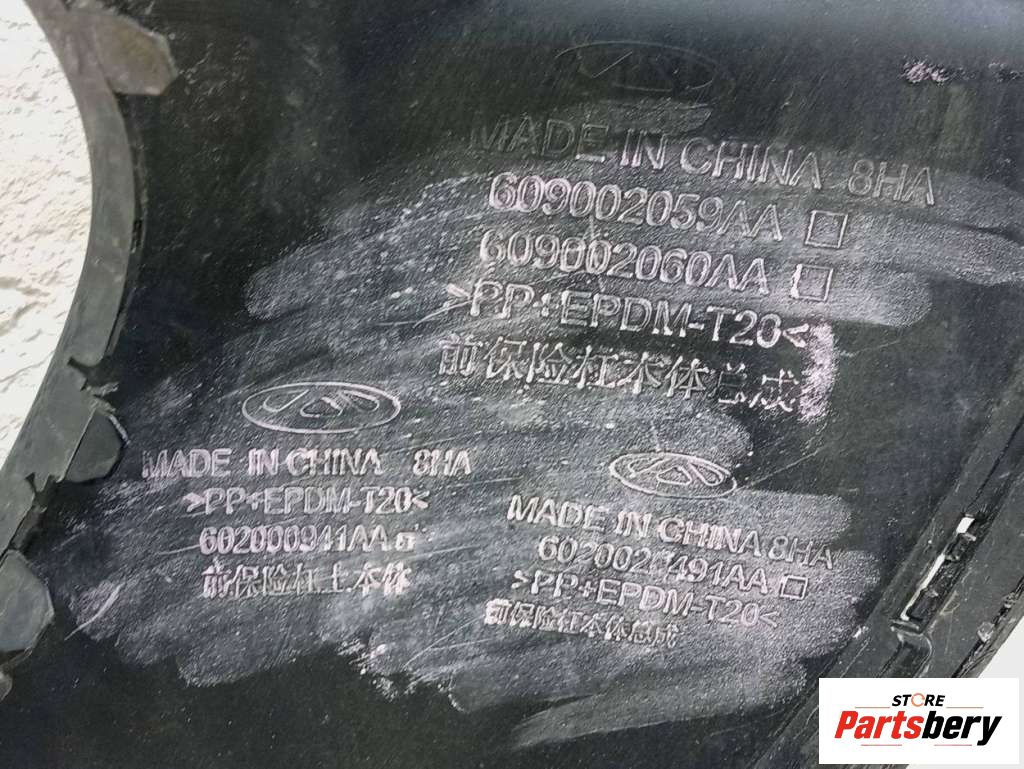 MADE IN CHINA 8HA
609002059AA
609002060AA
>PP+EPDM-T20<
前保险杠本体总成
MADE IN CHINA 8HA
>PP+EPDM-T20<
602000941AA
前保险杠上本体
MADE IN CHINA 8HA
>PP+EPDM-T20<
前保险杠本体总成
STORE
Partsbery